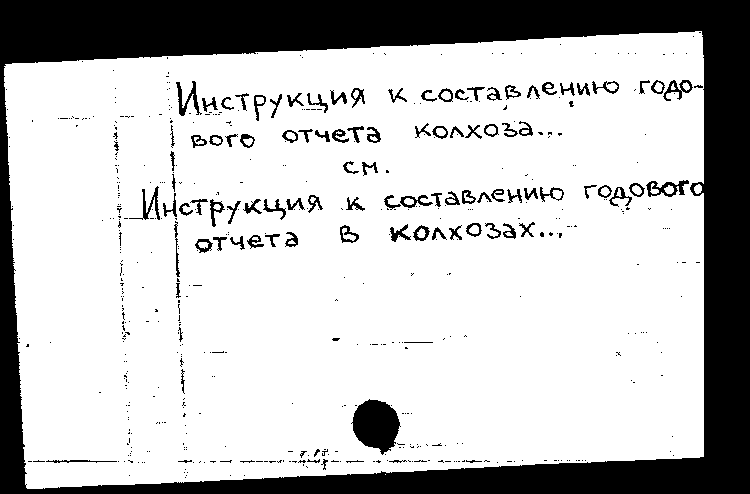 Инструкция к составлению годо-
вого отчета колхоза...
см.
Инструкция к составлению годового
отчета в колхозах...